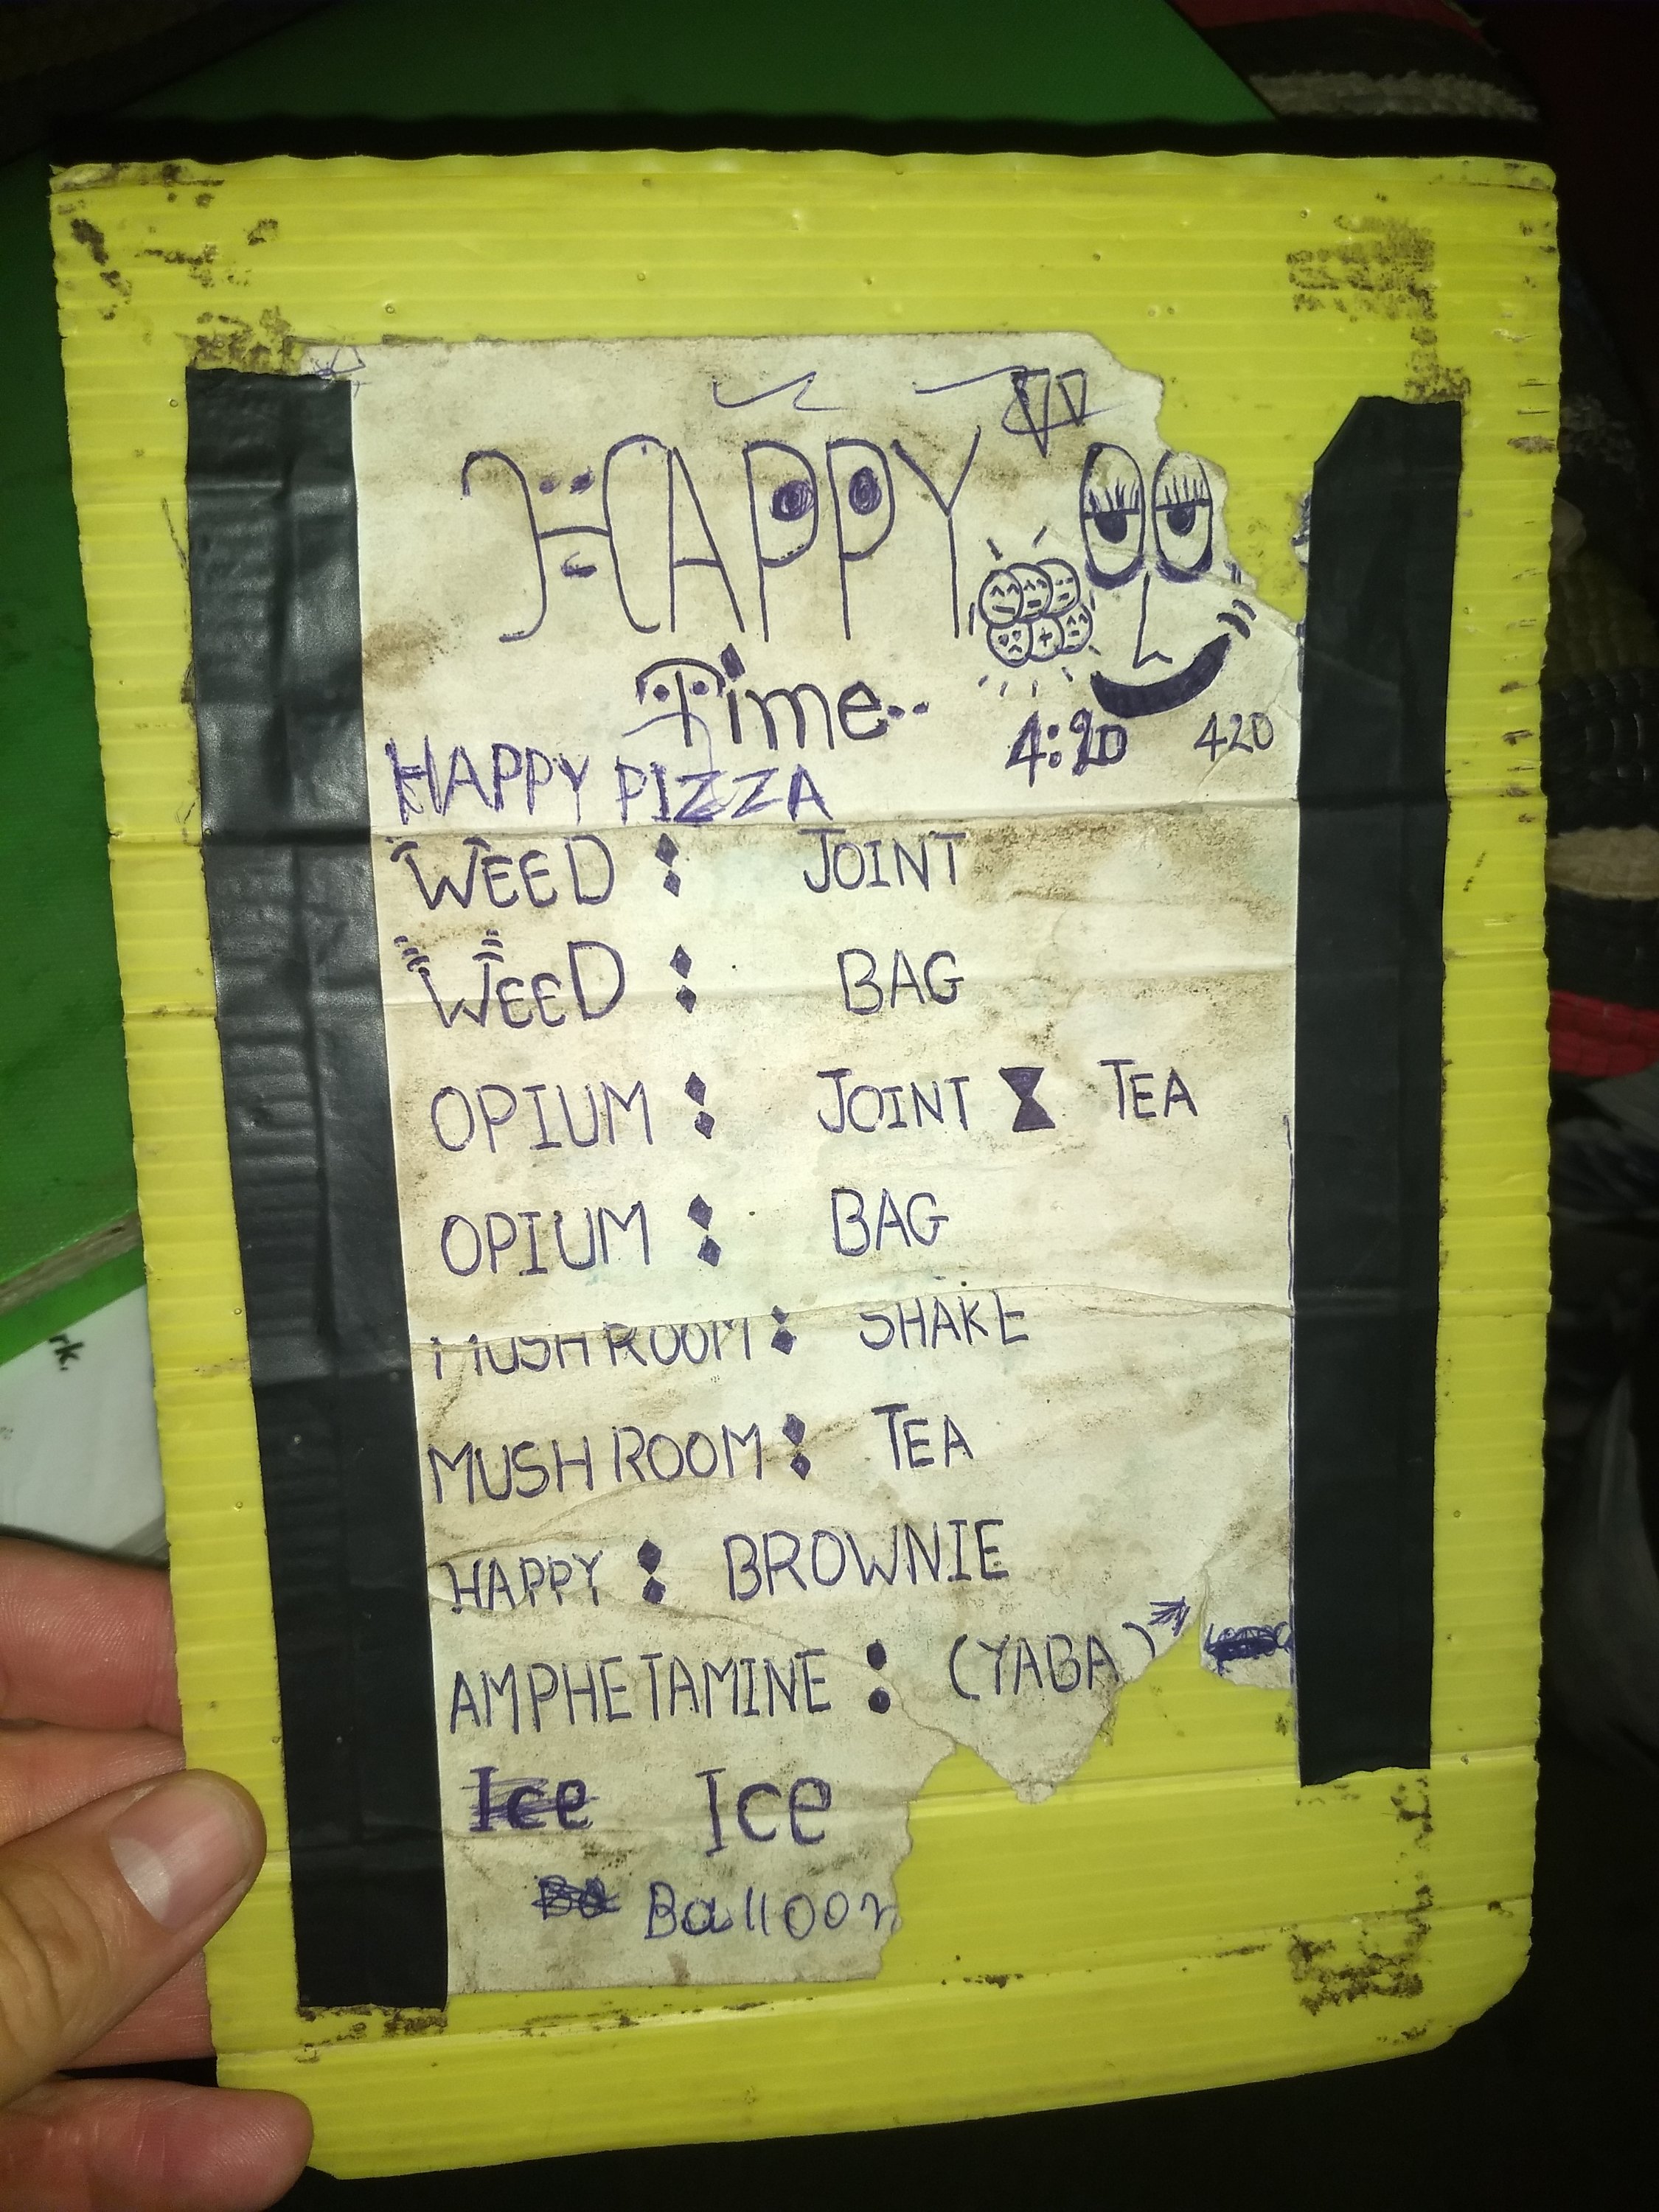 HAPPY
Time..
4:20 420
HAPPY PIZZA
WEED : JOINT
WEED : BAG
OPIUM : JOINT TEA
OPIUM : BAG
MUSHROOM : SHAKE
MUSHROOM : TEA
HAPPY : BROWNIE
AMPHETAMINE : (YABA)
Ice Ice
Balloon
rk.